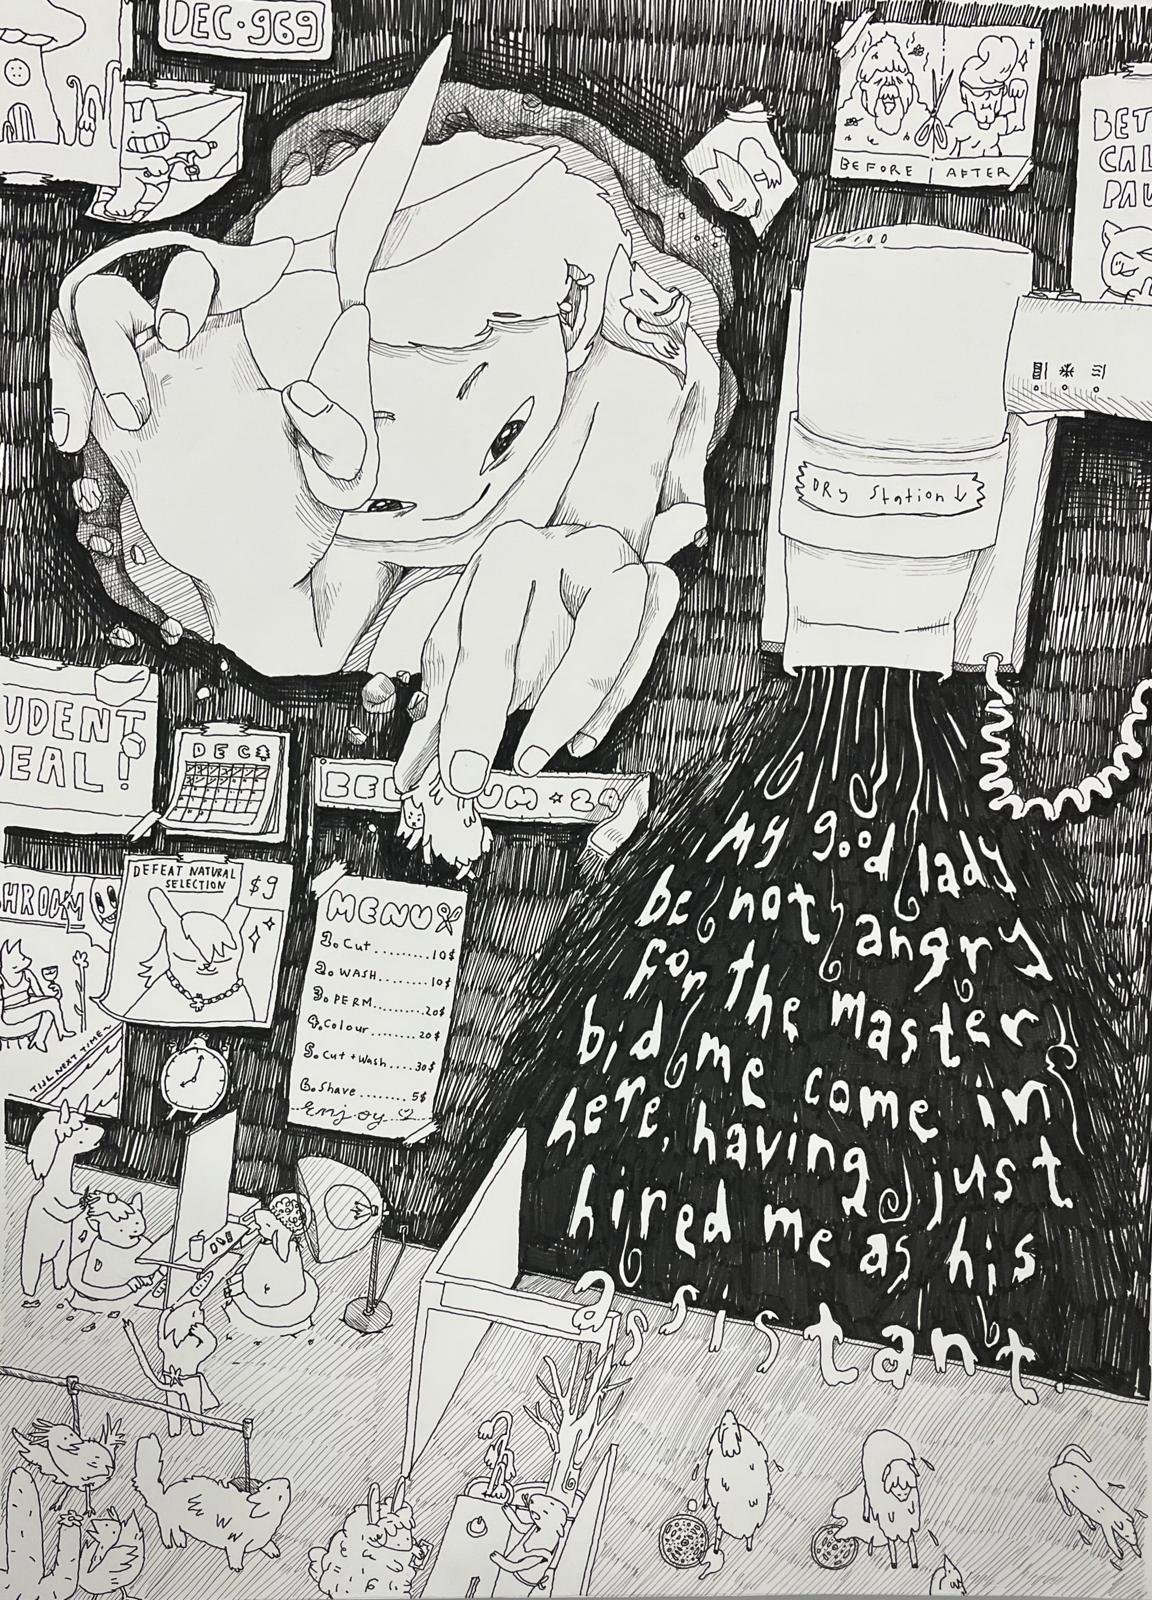 DEC·969
BEFORE | AFTER
BET
CAL
PAU
DRY Station ↓
UDENT
DEAL!
DEC
DEFEAT NATURAL
SELECTION
$9
SHROOM
TILL NEXT TIME~
MENU
1. Cut .......... 10$
2. WASH .......... 10$
3. PERM .......... 20$
4. Colour .......... 20$
5. Cut + Wash .... 30$
6. Shave .......... 5$
Enjoy ♡
My good lady
be not angry
for the master
bid me come in
here, having just
hired me as his
assistant.